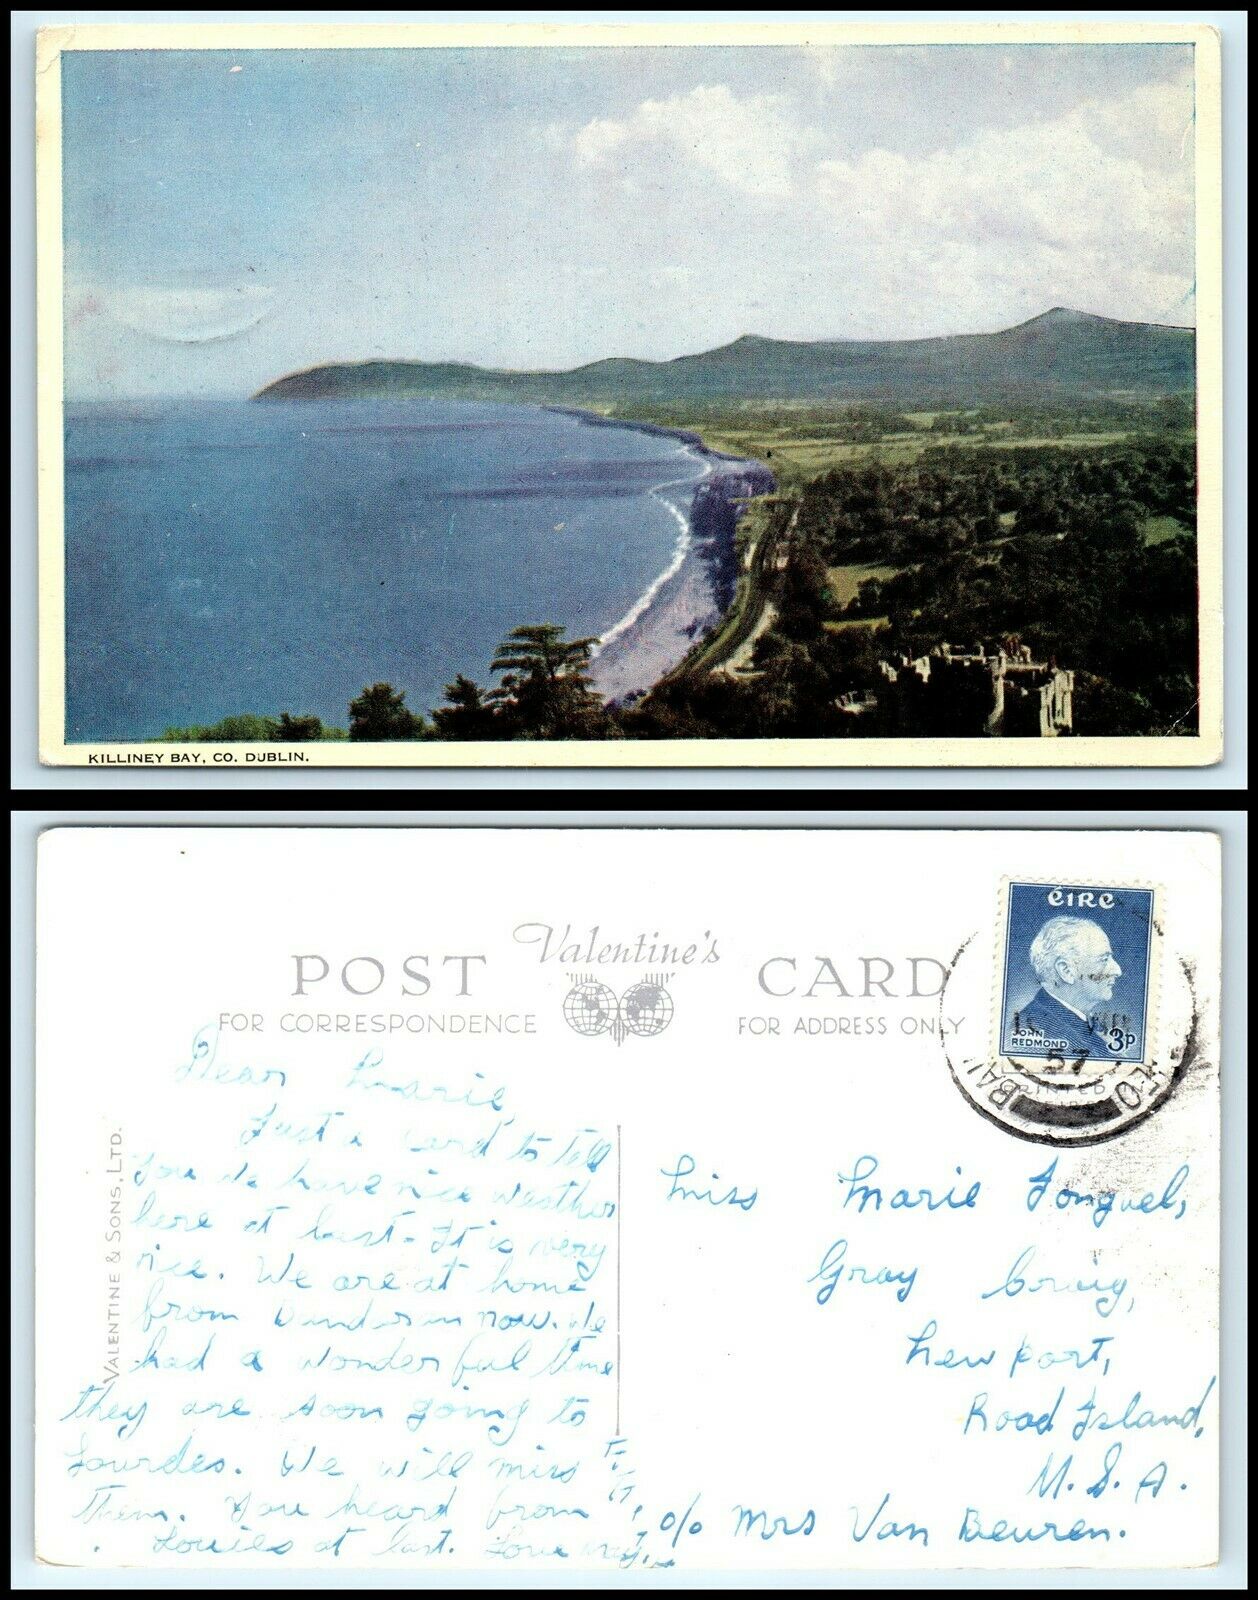 KILLINEY BAY, CO. DUBLIN.
Valentine's
POST CARD
FOR CORRESPONDENCE FOR ADDRESS ONLY
ÉIRE
JOHN
REDMOND 3p
VIII
57
PRINTED IN
VALENTINE & SONS, LTD.
Dear Marie,
Just a card to tell
you we have nice weather
here at last - It is very
nice. We are at home
from now. We
had a wonderful time
they are soon going to
Lourdes. We will miss
them. You heard from
at last.
Miss Marie
Gray Craig,
New port,
Road Island,
U.S.A.
c/o Mrs Van Beuren.